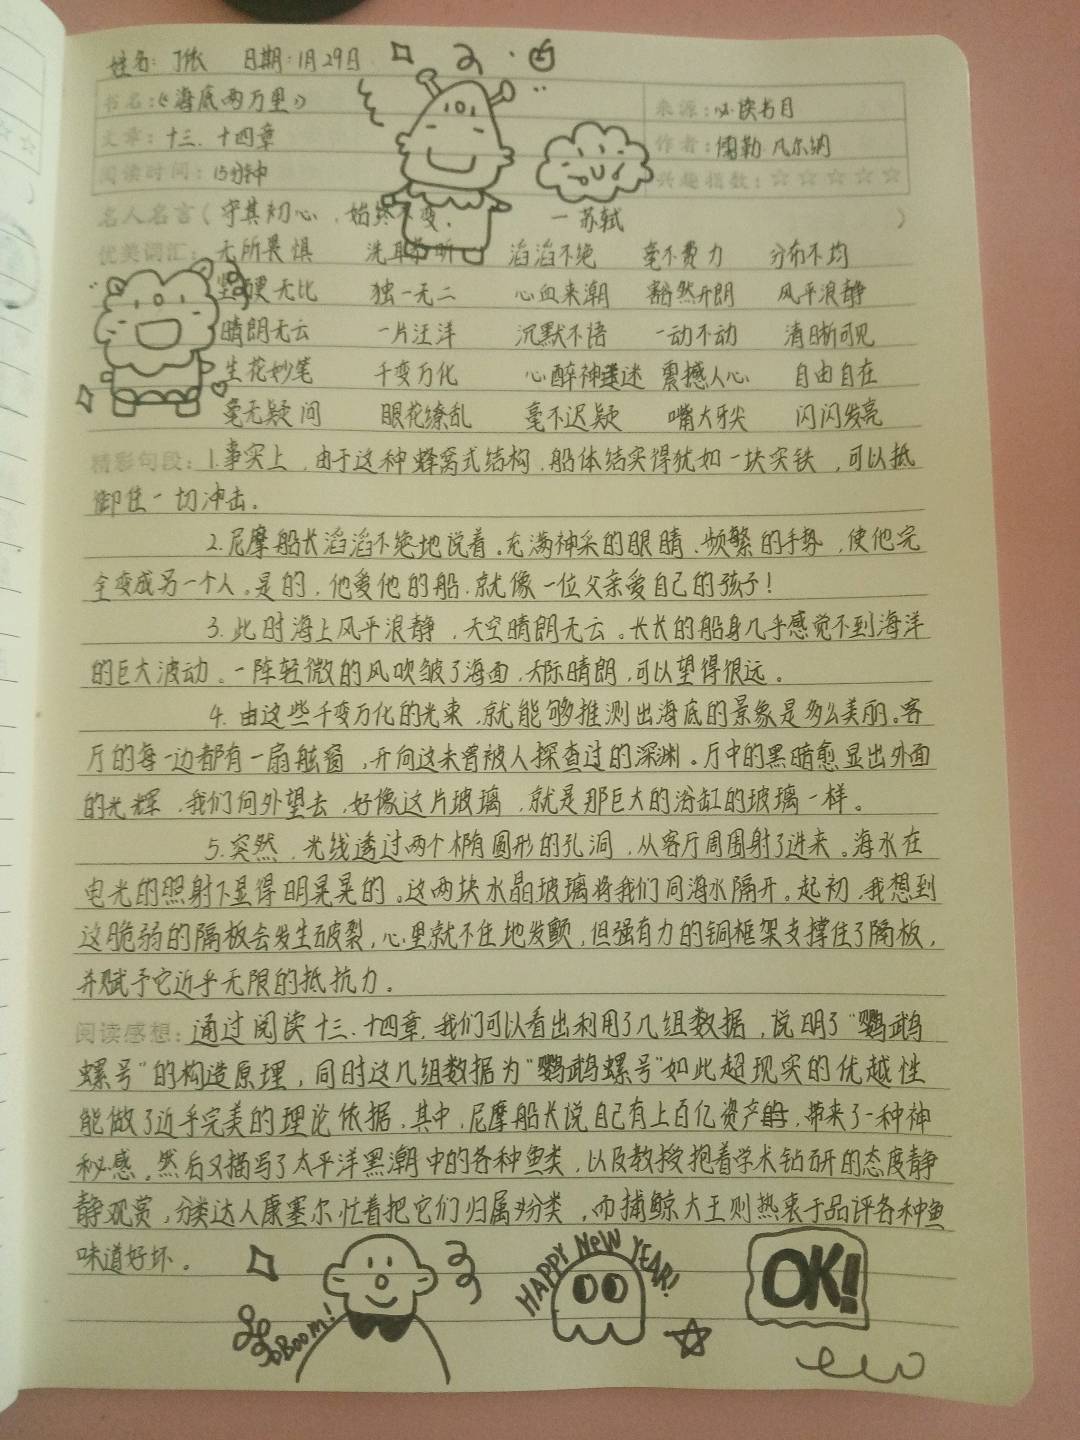 姓名：丁依 日期：1月29日
书名：《海底两万里》 来源：必读书目
文章：十三、十四章 作者：儒勒·凡尔纳
阅读时间：15分钟 兴趣指数：☆☆☆☆☆
名人名言（守其初心，始终不变. —苏轼）
优美词汇：无所畏惧 洗耳恭听 滔滔不绝 毫不费力 分布不均
坚硬无比 独一无二 心血来潮 豁然开朗 风平浪静
晴朗无云 一片汪洋 沉默不语 一动不动 清晰可见
生花妙笔 千变万化 心醉神迷 震撼人心 自由自在
毫无疑问 眼花缭乱 毫不迟疑 嘴大牙尖 闪闪发亮
精彩句段：1.事实上，由于这种蜂窝式结构，船体结实得犹如一块实铁，可以抵
御住一切冲击。
2.尼摩船长滔滔不绝地说着。充满神采的眼睛、频繁的手势，使他完
全变成另一个人。是的，他爱他的船，就像一位父亲爱自己的孩子！
3.此时海上风平浪静，天空晴朗无云。长长的船身几乎感觉不到海洋
的巨大波动。一阵轻微的风吹皱了海面，天际晴朗，可以望得很远。
4.由这些千变万化的光束，就能够推测出海底的景象是多么美丽。客
厅的每一边都有一扇舷窗，开向这未曾被人探查过的深渊。厅中的黑暗愈显出外面
的光辉，我们向外望去，好像这片玻璃，就是那巨大的浴缸的玻璃一样。
5.突然，光线透过两个椭圆形的孔洞，从客厅周围射了进来。海水在
电光的照射下显得明晃晃的。这两块水晶玻璃将我们同海水隔开。起初，我想到
这脆弱的隔板会发生破裂，心里就不住地发颤，但强有力的铜框架支撑住了隔板，
并赋予它近乎无限的抵抗力。
阅读感想：通过阅读十三、十四章，我们可以看出利用了几组数据，说明了“鹦鹉
螺号”的构造原理，同时这几组数据为“鹦鹉螺号”如此超现实的优越性
能做了近乎完美的理论依据，其中，尼摩船长说自己有上百亿资产时，带来了一种神
秘感。然后又描写了太平洋黑潮中的各种鱼类，以及教授抱着学术钻研的态度静
静观赏，分类达人康塞尔忙着把它们归属分类，而捕鲸大王则热衷于品评各种鱼
味道好坏。
HAPPY NEW YEAR!
OK!
BOOM!